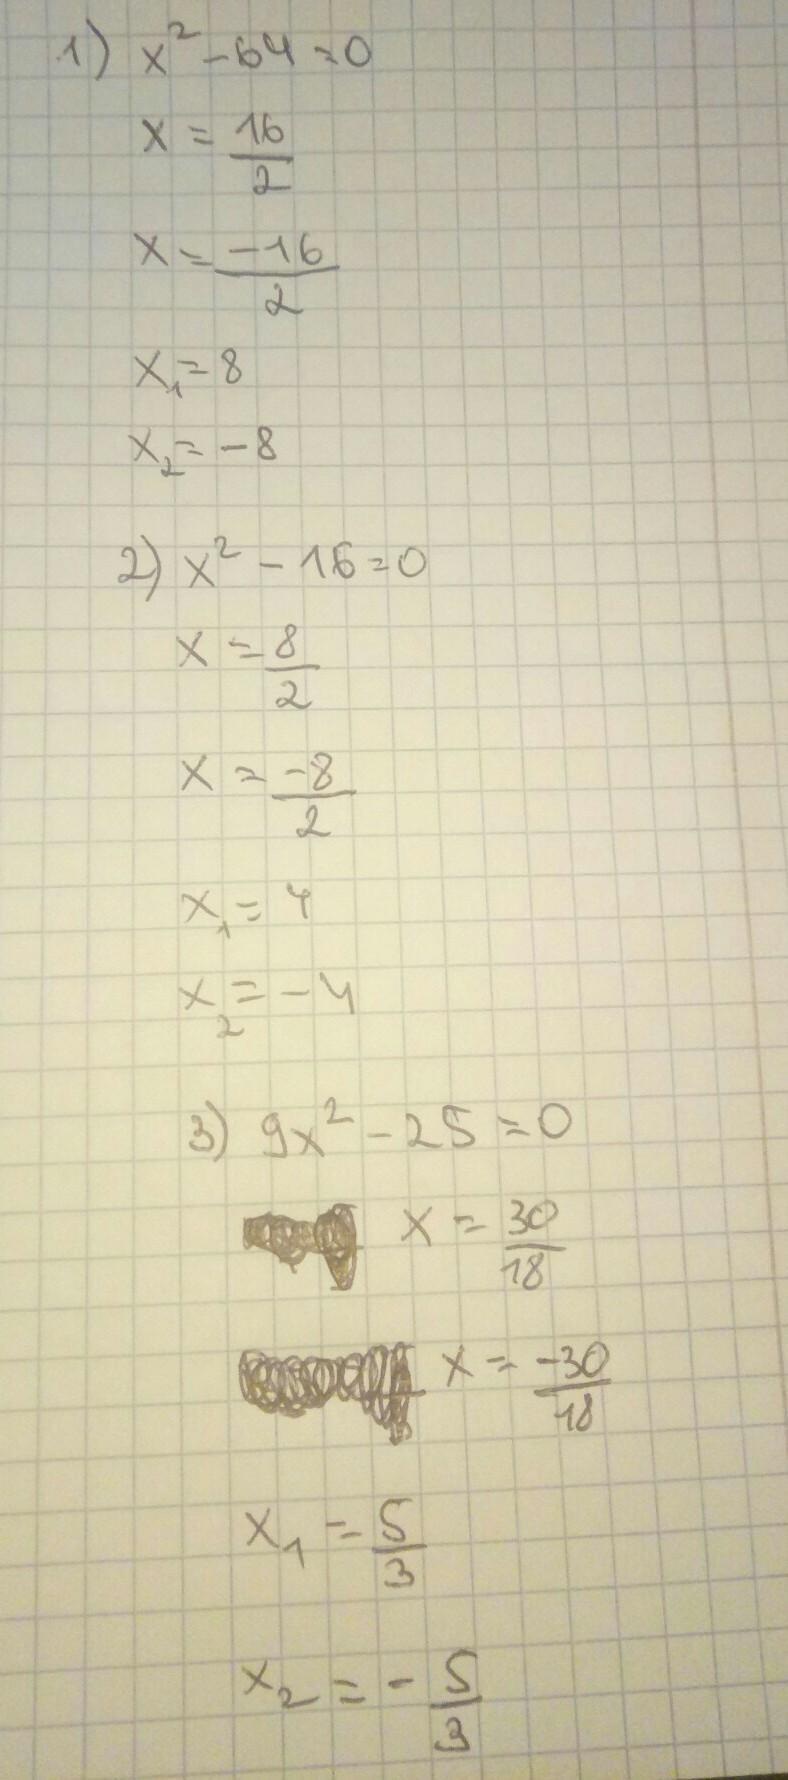 1) x² - 64 = 0
x = 16/2
x = -16/2
x₁ = 8
x₂ = -8
2) x² - 16 = 0
x = 8/2
x = -8/2
x₁ = 4
x₂ = -4
3) 9x² - 25 = 0
x = 30/18
x = -30/18
x₁ = 5/3
x₂ = - 5/3